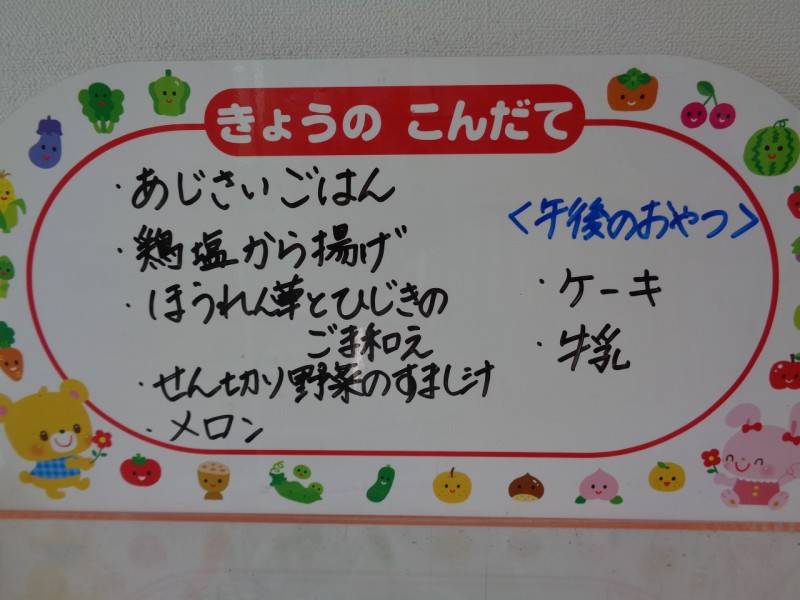 きょうの こんだて
・あじさいごはん
・鶏塩から揚げ
・ほうれん草とひじきの
ごま和え
・せん切り野菜のすまし汁
・メロン
<午後のおやつ>
・ケーキ
・牛乳